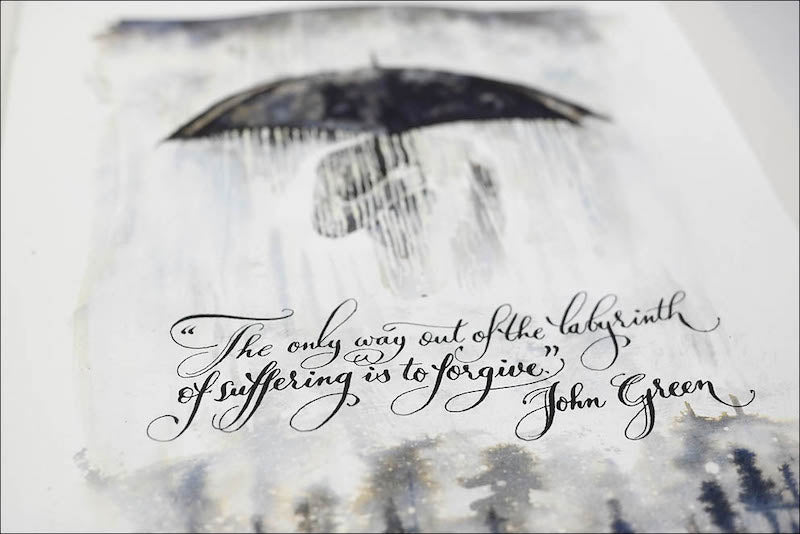 “The only way out of the labyrinth
of suffering is to forgive.”
John Green